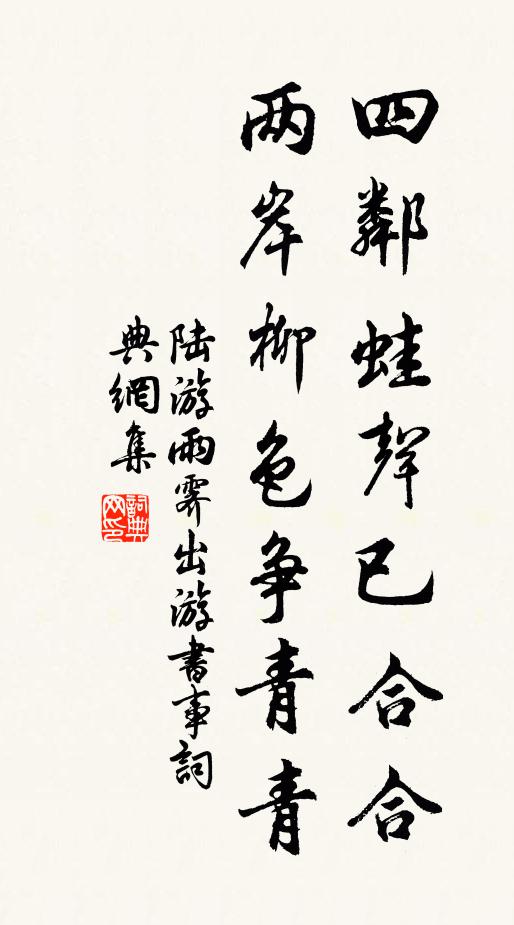 四鄰蛙聲已合合
两岸柳色争青青
陆游雨霽出游書事詞
典網集
詞典網印